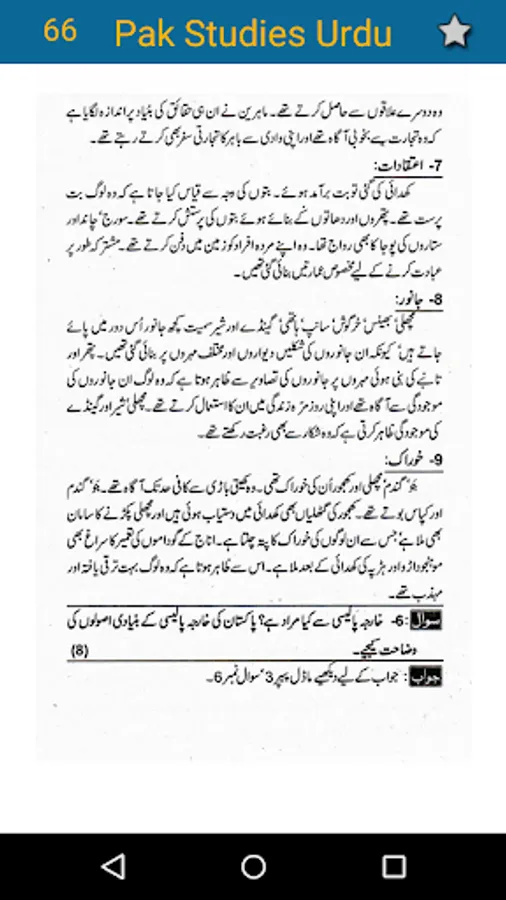 66 Pak Studies Urdu
وہ دوسرے علاقوں سے حاصل کرتے تھے۔ ماہرین نے ان ہی حقائق کی بنیاد پر اندازہ لگایا ہے
کہ وہ تجارت سے بخوبی آگاہ تھے اور اپنی وادی سے باہر کا تجارتی سفر بھی کرتے رہتے تھے۔
7- اعتقادات:
کھدائی کی گئی تو بت برآمد ہوئے۔ بتوں کی وجہ سے قیاس کیا جاتا ہے کہ وہ لوگ بت
پرست تھے۔ پتھروں اور دھاتوں کے بنائے ہوئے بتوں کی پرستش کرتے تھے۔ سورج' چاند اور
ستاروں کی پوجا کا بھی رواج تھا۔ وہ اپنے مردہ افراد کو زمین میں دفن کرتے تھے۔ مشترکہ طور پر
عبادت کرنے کے لیے مخصوص عمارتیں بنائی گئی تھیں۔
8- جانور:
مچھلی' بھینس' خرگوش' سانپ' ہاتھی' گینڈے اور شیر سمیت کچھ جانور اُس دور میں پائے
جاتے ہیں' کیونکہ ان جانوروں کی شکلیں دیواروں اور مختلف مہروں پر بنائی گئی تھیں۔ پتھر اور
تانبے کی بنی ہوئی مہروں پر جانوروں کی تصاویر سے ظاہر ہوتا ہے کہ وہ لوگ ان جانوروں کی
موجودگی سے آگاہ تھے اور اپنی روز مرہ زندگی میں ان کا استعمال کرتے تھے۔ مچھلی' شیر اور گینڈے
کی موجودگی ظاہر کرتی ہے کہ وہ شکار سے بھی رغبت رکھتے تھے۔
9- خوراک:
جَو' گندم' مچھلی اور کھجور اُن کی خوراک تھی۔ وہ کھیتی باڑی سے کافی حد تک آگاہ تھے۔ جَو' گندم
اور کپاس بوتے تھے۔ کھجور کی گٹھلیاں بھی کھدائی میں دستیاب ہوئی ہیں اور مچھلی پکڑنے کا سامان
بھی ملا ہے' جس سے ان لوگوں کی خوراک کا پتہ چلتا ہے۔ اناج کے گوداموں کی تعمیر کا سراغ بھی
موہنجوداڑو اور ہڑپہ کی کھدائی کے بعد ملا ہے۔ اس سے ظاہر ہوتا ہے کہ وہ لوگ بہت ترقی یافتہ اور
مہذب تھے۔
سوال :6- خارجہ پالیسی سے کیا مراد ہے؟ پاکستان کی خارجہ پالیسی کے بنیادی اصولوں کی
وضاحت کیجیے۔ (8)
جواب : جواب کے لیے دیکھیے ماڈل پیپر 3' سوال نمبر 6۔